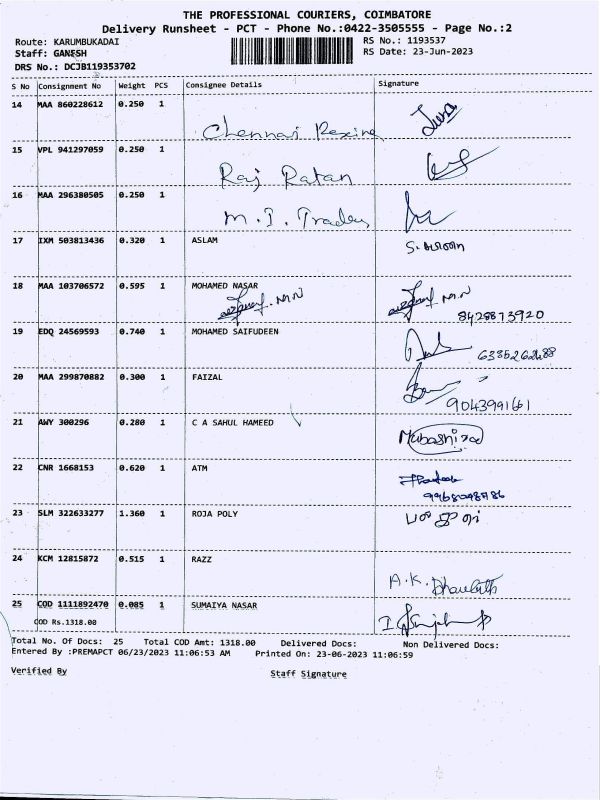 THE PROFESSIONAL COURIERS, COIMBATORE
Delivery Runsheet - PCT - Phone No.:0422-3505555 - Page No.:2
Route: KARUMBUKADAI RS No.: 1193537
Staff: GANESH RS Date: 23-Jun-2023
DRS No.: DCJB119353702
S No Consignment No Weight PCS Consignee Details Signature
14 MAA 860228612 0.250 1
Chennai Rexine
15 VPL 941297059 0.250 1
Raj Ratan
16 MAA 296380505 0.250 1
M.I. Traders
17 IXM 503813436 0.320 1 ASLAM
18 MAA 103706572 0.595 1 MOHAMED NASAR
M.N M.N
8428873920
19 EDQ 24569593 0.740 1 MOHAMED SAIFUDEEN
20 MAA 299870882 0.300 1 FAIZAL
9043991661
21 AWY 300296 0.280 1 C A SAHUL HAMEED
Mubashira
22 CNR 1668153 0.620 1 ATM
23 SLM 322633277 1.360 1 ROJA POLY
24 KCM 12815872 0.515 1 RAZZ
A.K.
25 COD 1111892470 0.085 1 SUMAIYA NASAR
COD Rs.1318.00
Total No. Of Docs: 25 Total COD Amt: 1318.00 Delivered Docs: Non Delivered Docs:
Entered By :PREMAPCT 06/23/2023 11:06:53 AM Printed On: 23-06-2023 11:06:59
Verified By Staff Signature